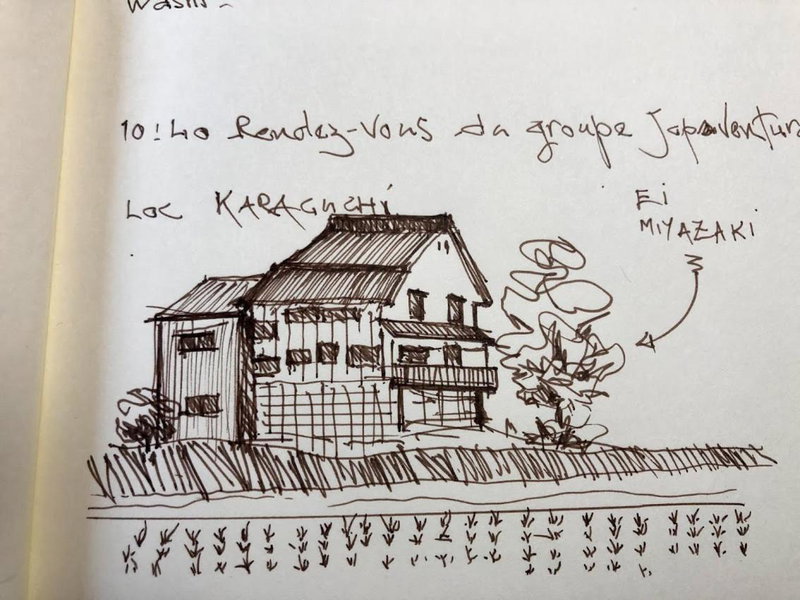 Washi -
10:40 Rendez-Vous du groupe Japaventur
Loc KARAGUCHI
Ei
MIYAZAKI